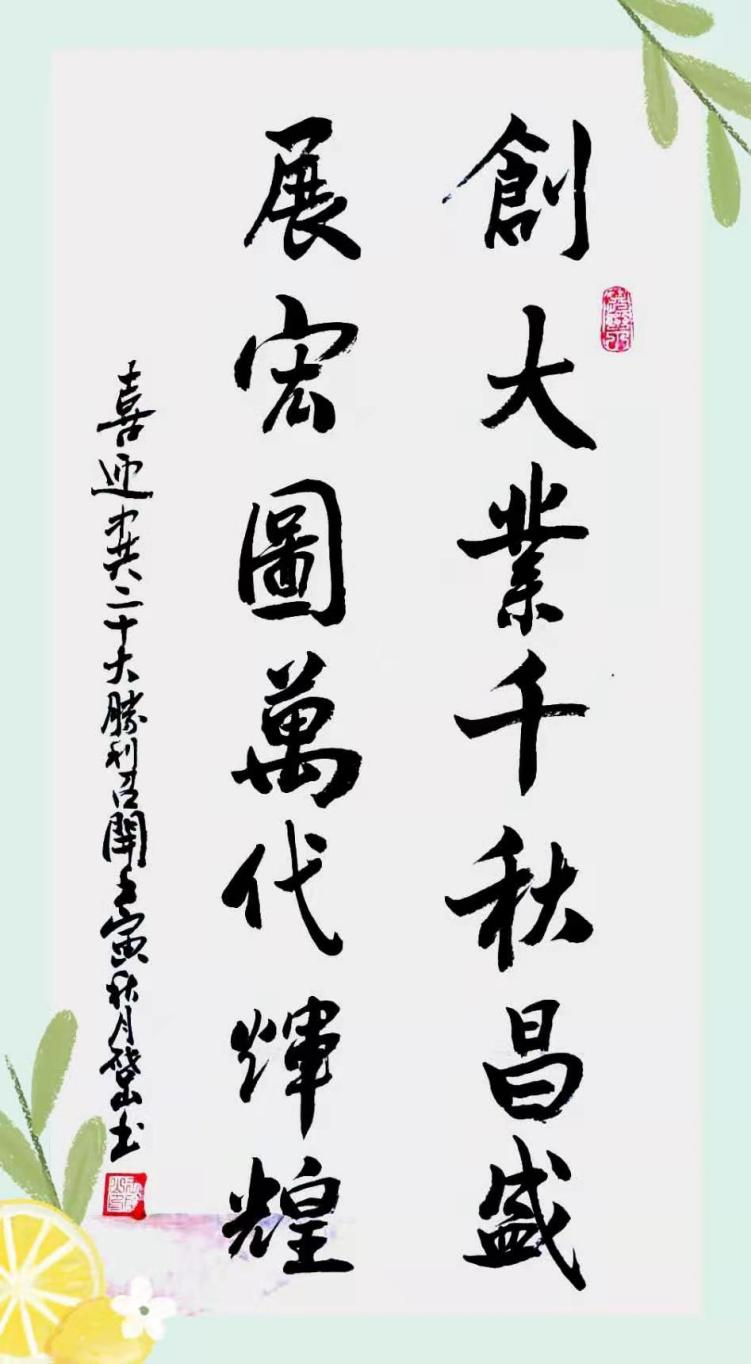 創大業千秋昌盛
展宏圖萬代煇煌
喜迎中共二十大勝利召開壬寅秋月山书